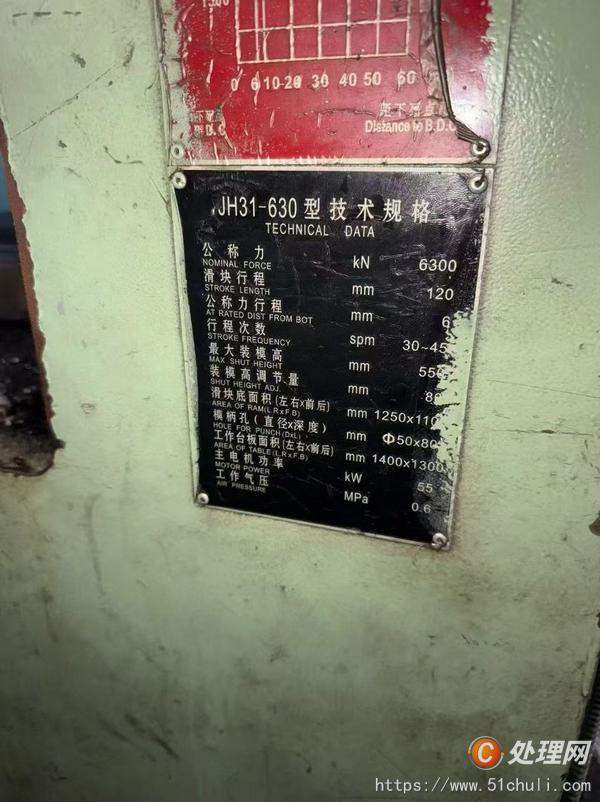 0 6 10 20 30 40 50 60
距下死点
Distance to B.D.C
B.D.C
JH31-630型技术规格
TECHNICAL DATA
公称力 kN 6300
NOMINAL FORCE
滑块行程 mm 120
STROKE LENGTH
公称力行程 mm 6
AT RATED DIST FROM BOT
行程次数 spm 30~45
STROKE FREQUENCY
最大装模高 mm 550
MAX. SHUT HEIGHT
装模高调节量 mm
SHUT HEIGHT ADJ.
滑块底面积(左右x前后) mm 1250x110
AREA OF RAM(L.RxF.B)
模柄孔(直径x深度) mm Φ50x80
HOLE FOR PUNCH(DxL)
工作台板面积(左右x前后) mm 1400x1300
AREA OF TABLE(L.RxF.B)
主电机功率 kW 55
MOTOR POWER
工作气压 MPa 0.6
AIR PRESSURE
C 处理网
https://www.51chuli.com